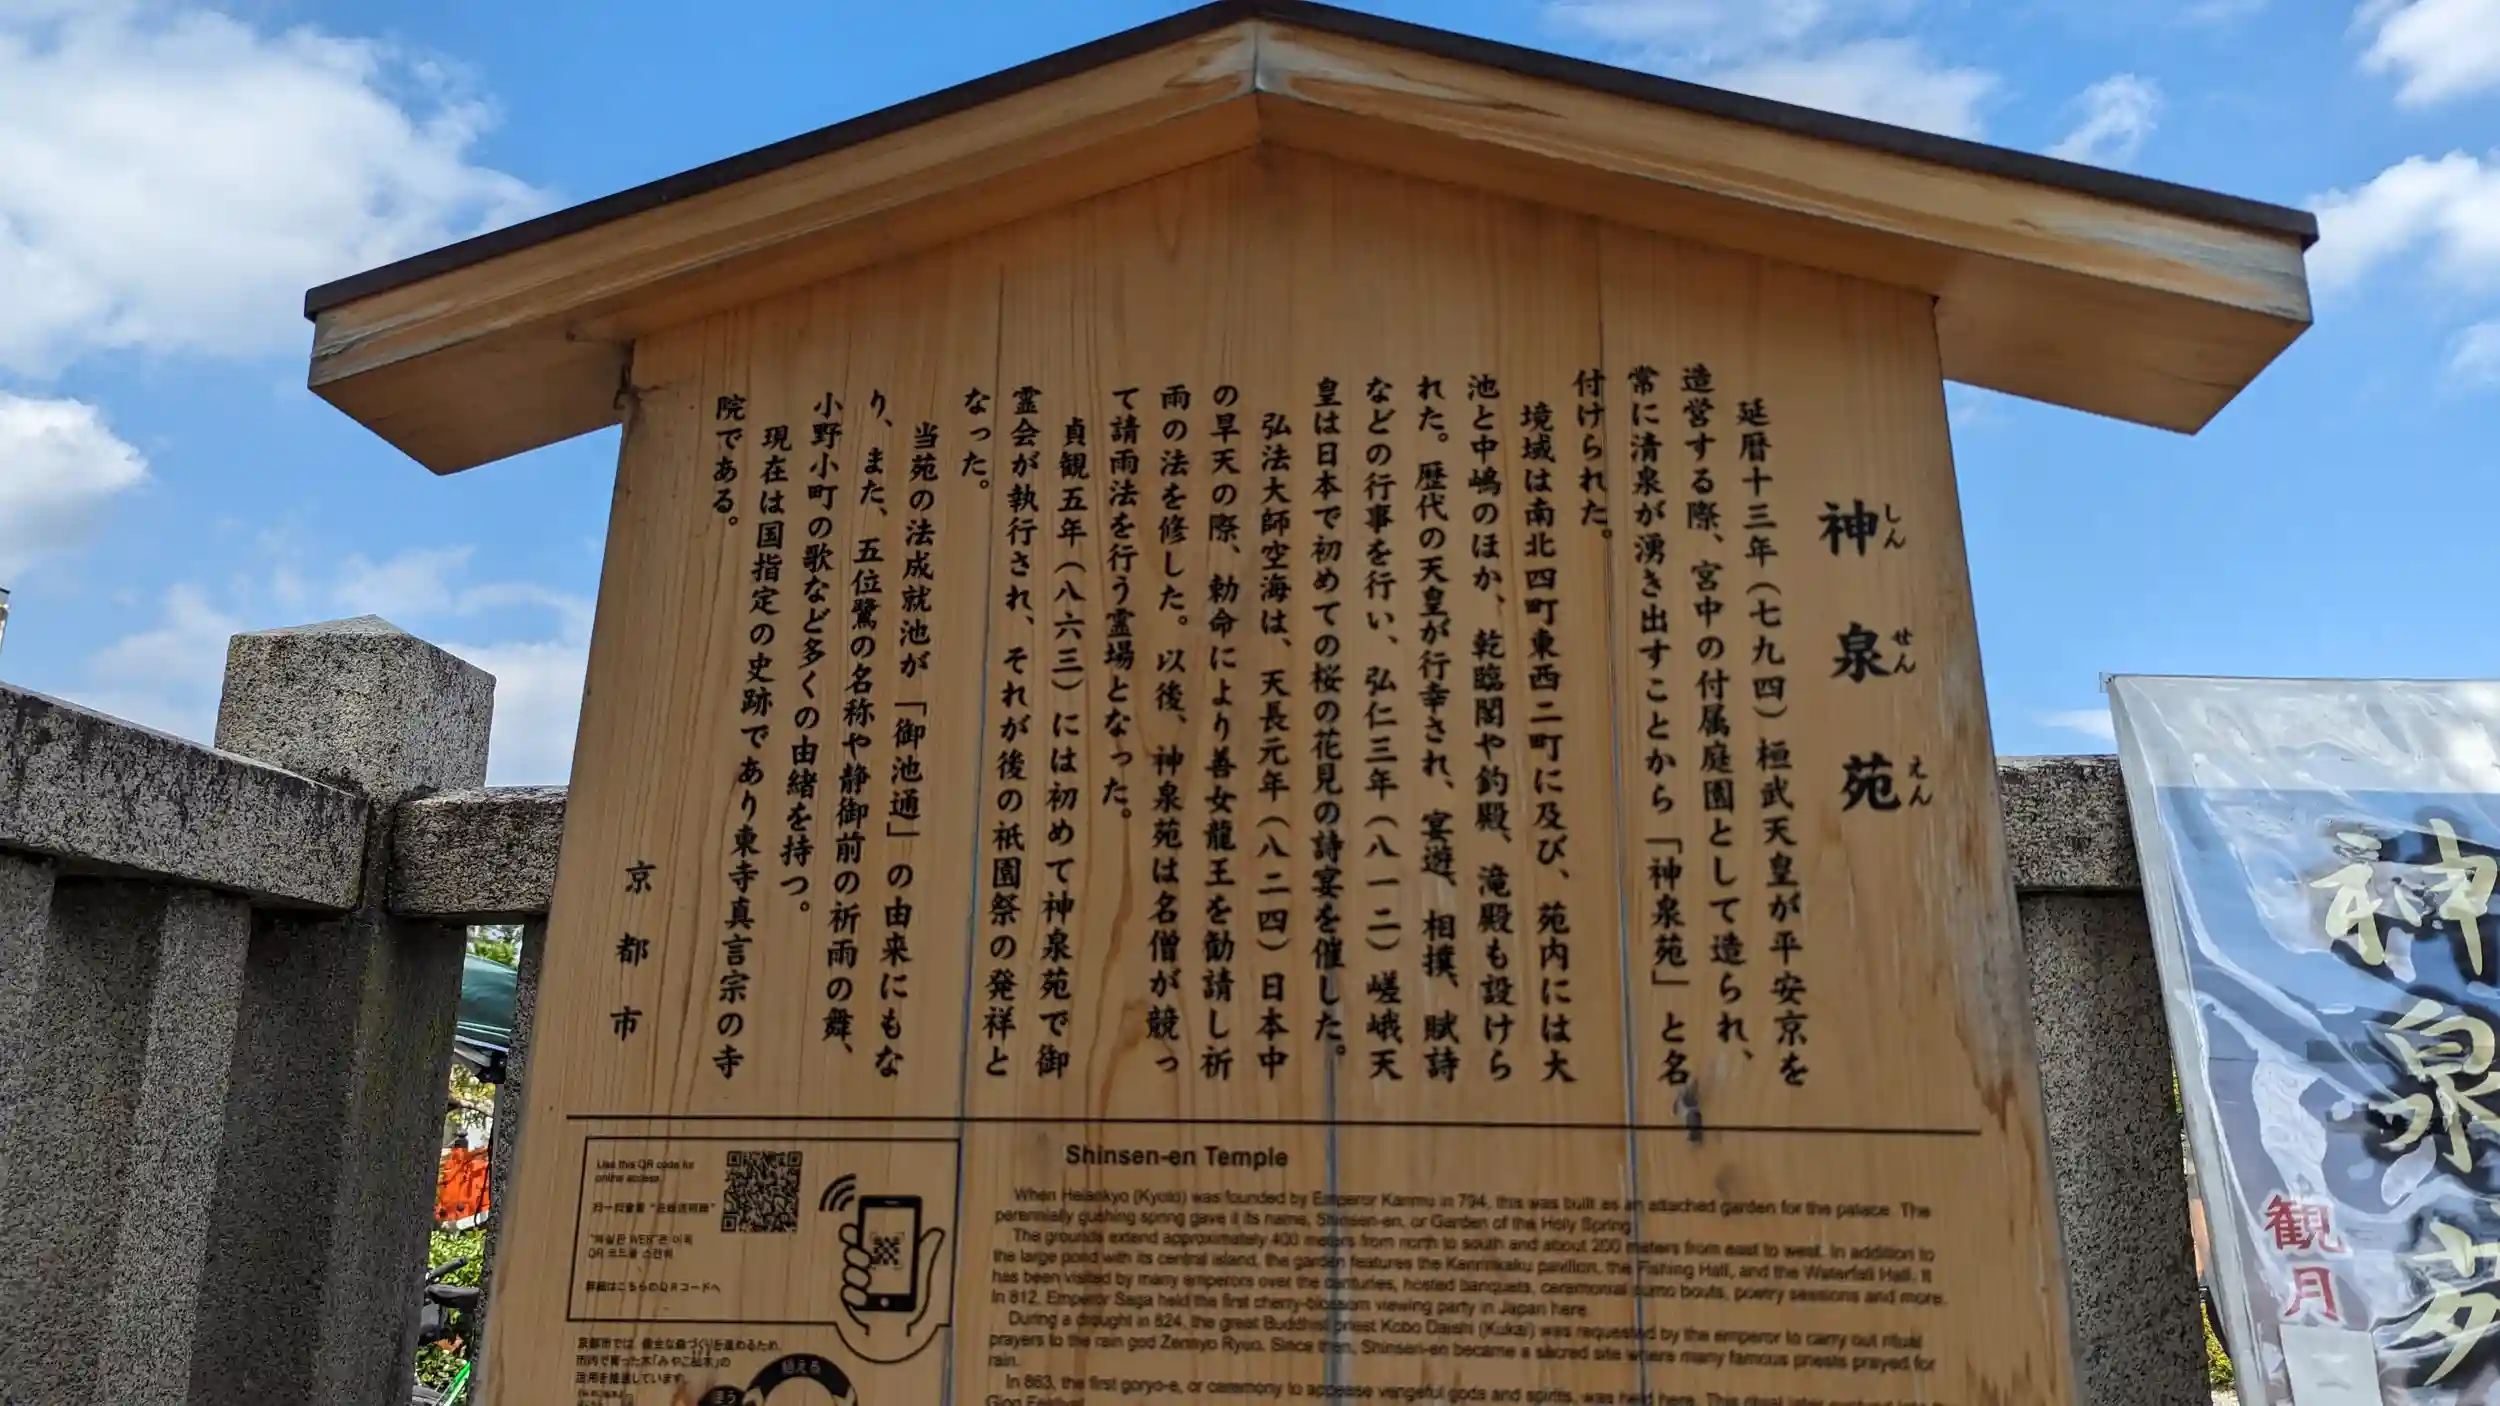 神泉苑
しんせんえん
延暦十三年（七九四）桓武天皇が平安京を
造営する際、宮中の付属庭園として造られ、
常に清泉が湧き出すことから「神泉苑」と名
付けられた。
境域は南北四町東西二町に及び、苑内には大
池と中嶋のほか、乾臨閣や釣殿、滝殿も設けら
れた。歴代の天皇が行幸され、宴遊、相撲、賦詩
などの行事を行い、弘仁三年（八一二）嵯峨天
皇は日本で初めての桜の花見の詩宴を催した。
弘法大師空海は、天長元年（八二四）日本中
の旱天の際、勅命により善女龍王を勧請し祈
雨の法を修した。以後、神泉苑は名僧が競っ
て請雨法を行う霊場となった。
貞観五年（八六三）には初めて神泉苑で御
霊会が執行され、それが後の祇園祭の発祥と
なった。
当苑の法成就池が「御池通」の由来にもな
り、また、五位鷺の名称や静御前の祈雨の舞、
小野小町の歌など多くの由緒を持つ。
現在は国指定の史跡であり東寺真言宗の寺
院である。
京都市
Shinsen-en Temple
When Heiankyo (Kyoto) was founded by Emperor Kanmu in 794, this was built as an attached garden for the palace. The
perennially gushing spring gave it its name, Shinsen-en, or Garden of the Holy Spring.
The grounds extend approximately 400 meters from north to south and about 200 meters from east to west. In addition to
the large pond with its central island, the garden features the Kenrinkaku pavilion, the Fishing Hall, and the Waterfall Hall. It
has been visited by many emperors over the centuries, hosted banquets, ceremonial sumo bouts, poetry sessions and more.
In 812, Emperor Saga held the first cherry-blossom viewing party in Japan here.
During a drought in 824, the great Buddhist priest Kobo Daishi (Kukai) was requested by the emperor to carry out ritual
prayers to the rain god Zennyo Ryuo. Since then, Shinsen-en became a sacred site where many famous priests prayed for
rain.
In 863, the first goryo-e, or ceremony to appease vengeful gods and spirits, was held here. This ritual later evolved into
Gion Festival.
Use this QR code for
online access.
扫一扫查看
"해설판 WEB"은 이쪽
QR 코드를 스캔해
詳細はこちらのQRコードへ
京都市では、健全な森づくりを進めるため、
市内で育った木「みやこ杣木」の
活用を推進しています。
植える
神泉苑
観月